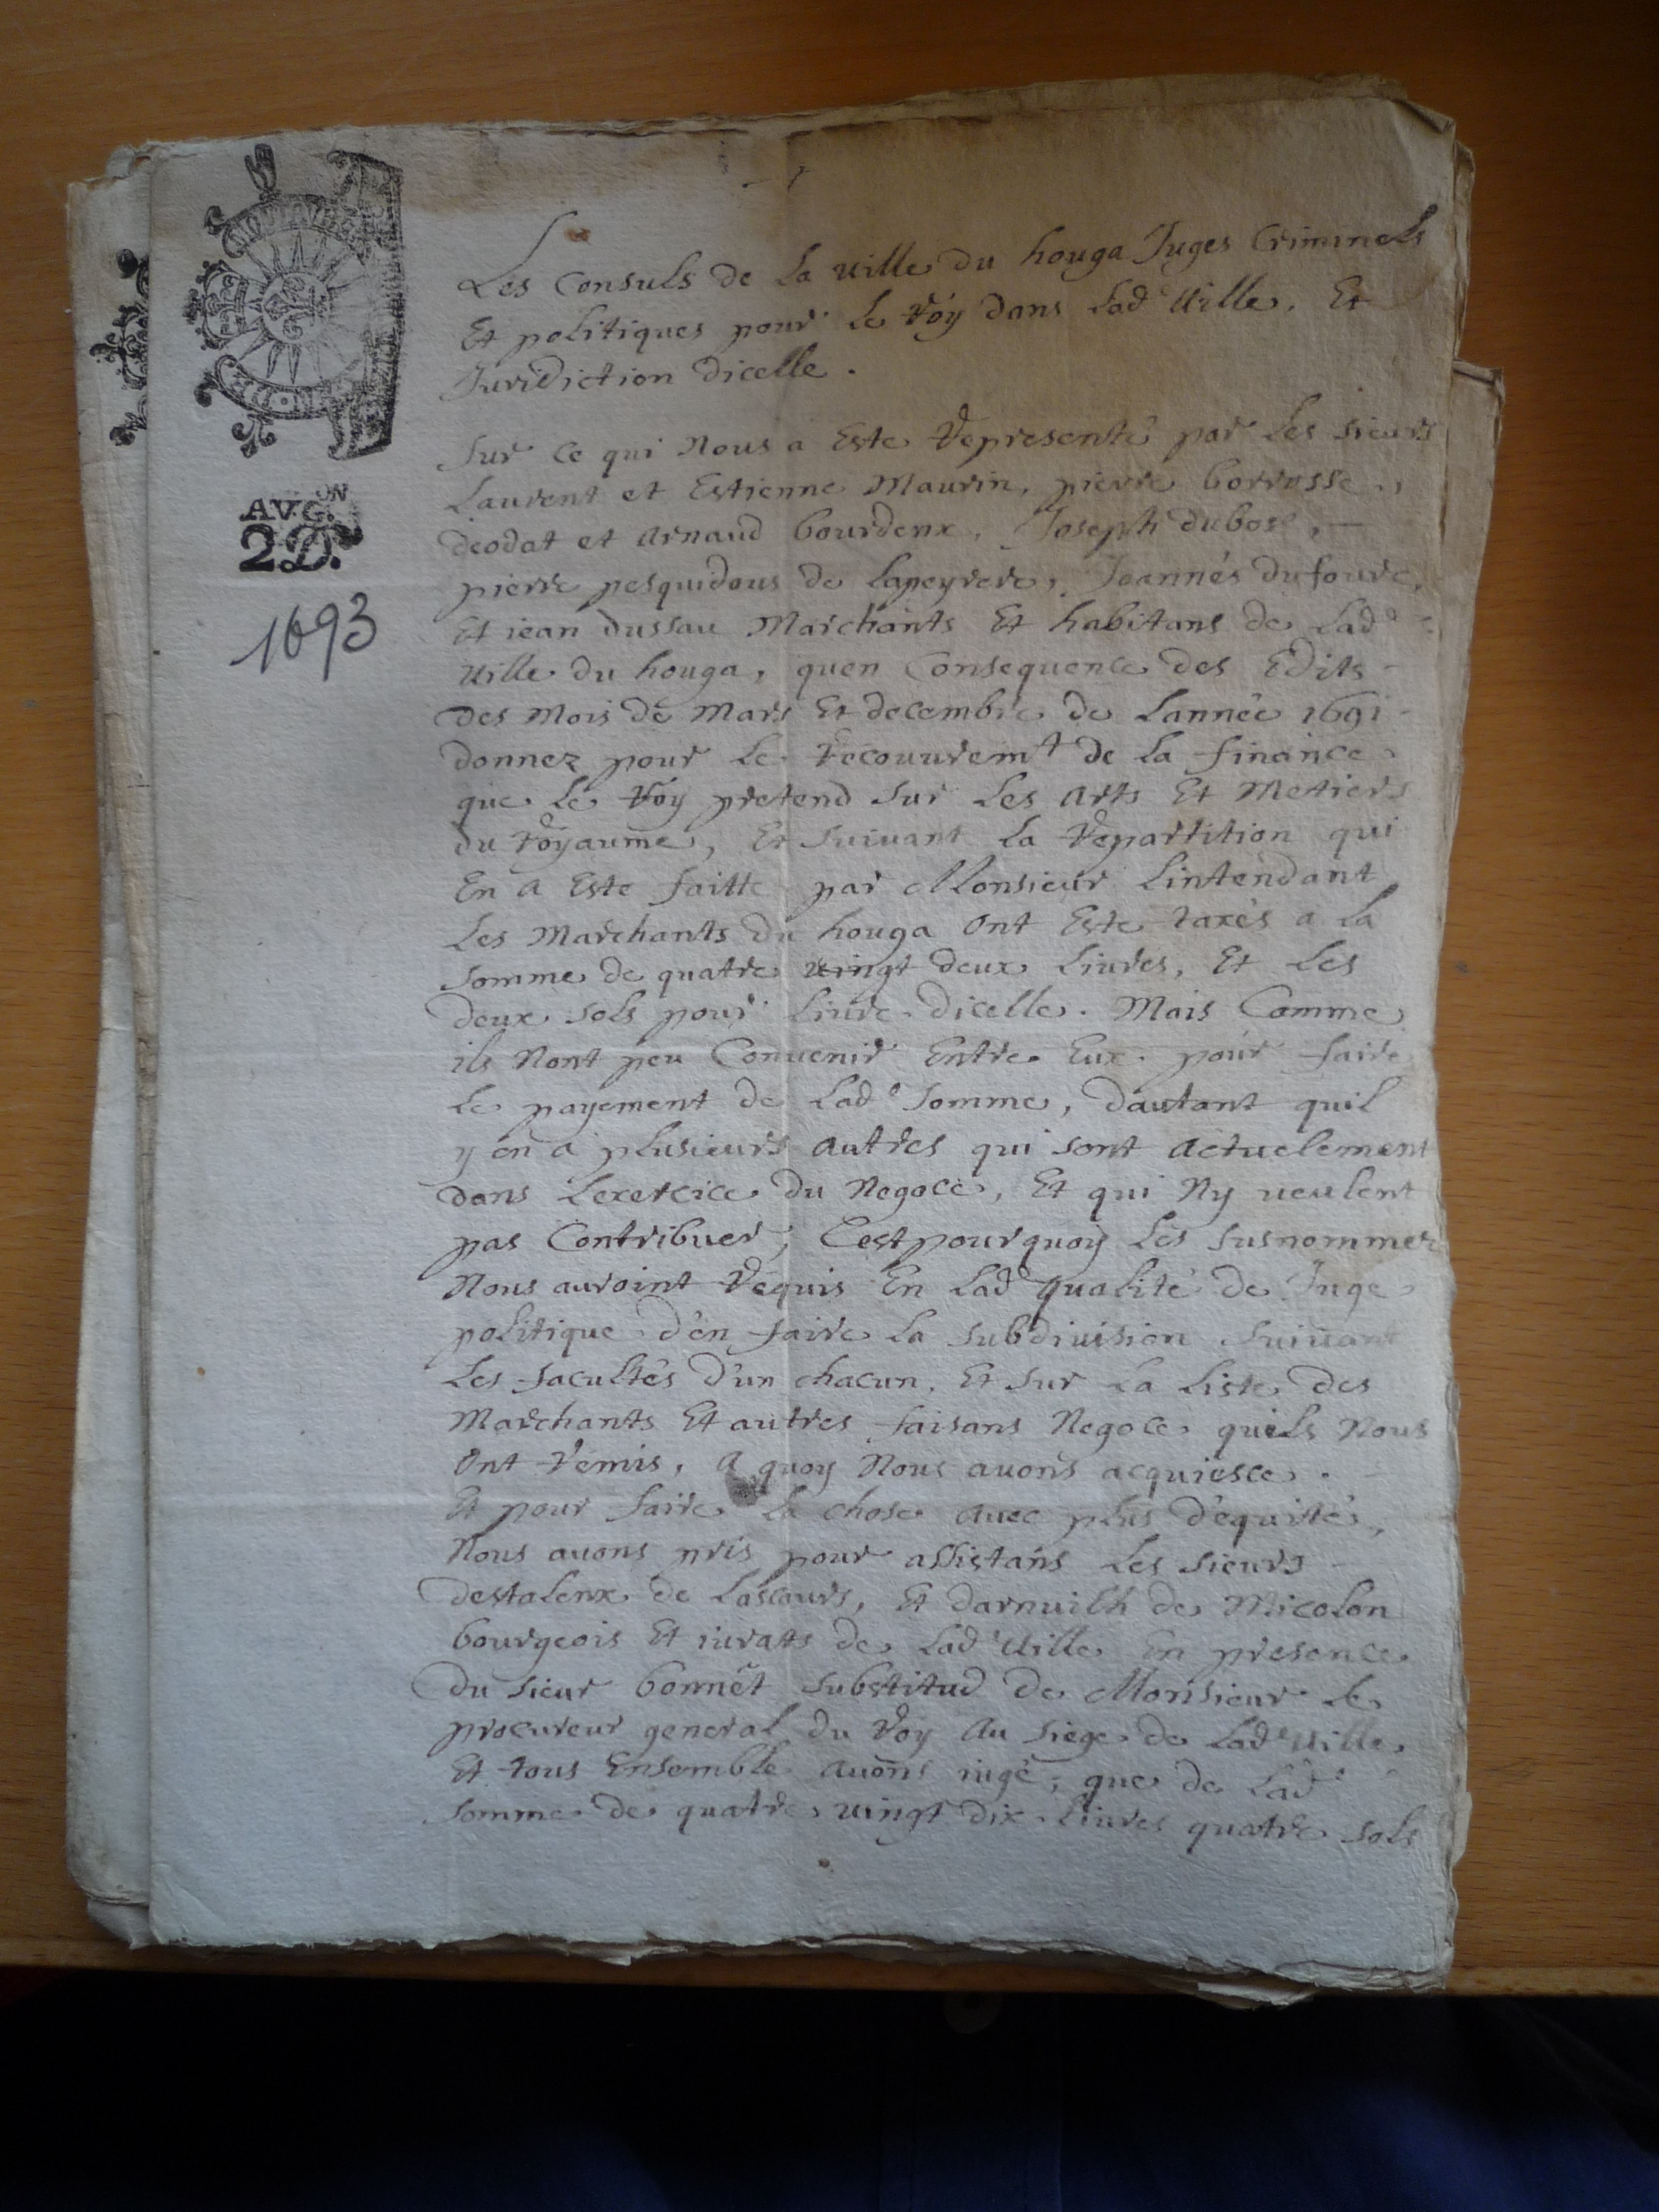 AVG.ON
2D.
1693
Les Consuls de La ville du houga Juges Criminels
Et politiques pour le Roy dans Lad.e Ville, Et
Juridiction dicelle.
Sur ce qui Nous a Este Representé par les sieurs
Laurent et Estienne Maurin, pierre borrusse,
deodat et Arnaud bourdenx, Joseph dubosc,
pierre pesquidous de Lapeyrere, Joannés dufourc,
Et jean dussau Marchants Et habitans de Lad.e
Ville du houga, quen Consequence des Edits
des Mois de Mars Et decembre de Lannée 1691
donnez pour le recouvrem.t de la finance
que le Roy pretend sur les Arts Et Metiers
du Royaume, Et suivant la Repartition qui
En a Este faitte par Monsieur Lintendant
Les Marchants du houga Ont Este taxés a la
somme de quatre vingt deux Livres, Et Les
deux sols pour Livre dicelle. Mais Comme
ils Nont peu Convenir Entre Eux pour faire
le payement de Lad.e somme, dautant quil
y en a plusieurs autres qui sont actuelement
dans Lexercice du Negoce, Et qui Ny veulent
pas Contribuer, Cestpourquoy Les susnommez
Nous auroint Requis En Lad.e qualité de Juge
politique d'en faire la subdivision suivant
Les facultés d'un chacun, Et sur La Liste des
Marchants Et autres faisans Negoce quils Nous
Ont Remis, a quoy Nous avons acquiescé.
Et pour faire La chose avec plus d'equité,
Nous avons pris pour assistans Les sieurs
destalenx de Lascours, Et darnuilh de Micolon
bourgeois Et jurats de Lad.e Ville En presence
du sieur bonnet substitud de Monsieur le
procureur general du Roy Au siege de Lad.e Ville,
Et tous Ensemble avons jugé, que de Lad.e
somme de quatre vingt dix Livres quatre sols